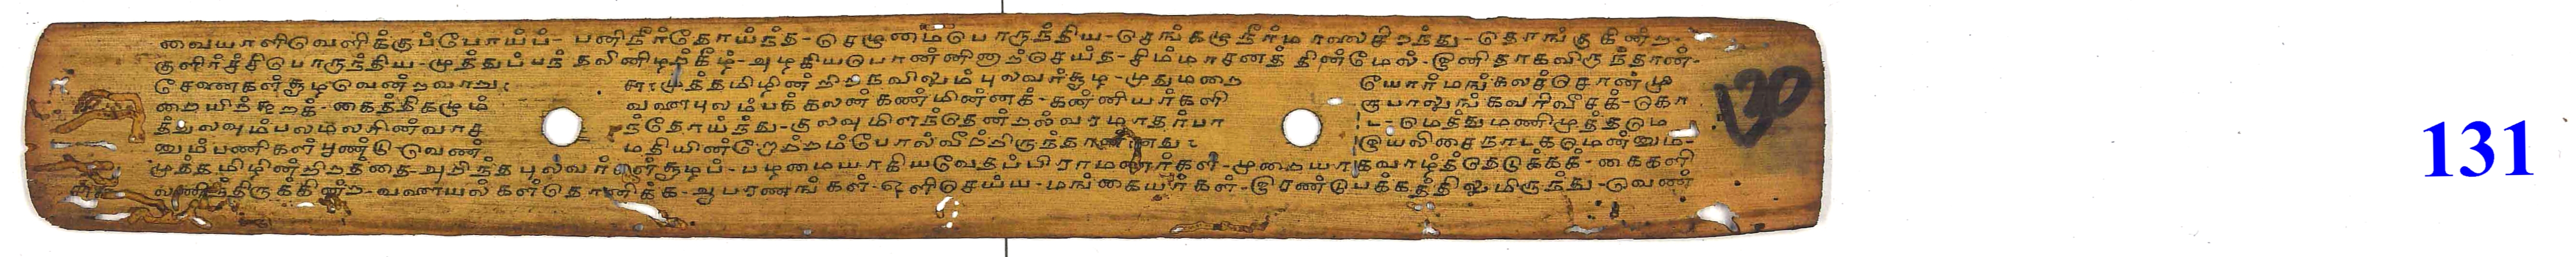 வையாளிவெளிக்குப்போய்ப்- பனிநீர்தோய்ந்த-செழுமைபொருந்திய-செங்கழுநீர்மாலைசிறந்து-தொங்குகின்ற-
குளிர்ச்சிபொருந்திய-முத்துப்பந்தலினிழற்கீழ்-அழகியபொன்னினாற்செய்த-சிம்மாசனத்தின்மேல்-இனிதாகவிருந்தான்-
சேனைகள்சூழவென்றவாறு: முத்தமிழின்றிறகவிலும்புலவர்சூழ-முதுமறை யோர்மங்கலச்சொன்மு
றையிற்கூறக்-கைத்திகழும் வளைபுலம்பக்கலன்கண்மின்னக்-கன்னியர்களி ருபாலுங்கவரிவீசக்-கொ
த்துலவும்பலமலரின்வாச ந்தோய்ந்து-குலவுமிளந்தென்றல்வரமாதர்பா ட-மெத்துமணிமுத்தம
னும்பணிகள்பூண்டு-வெண் மதியின்றோற்றம்போல்வீற்றிருந்தா இயலிசைநாடகமென்னும்-
முத்தமிழின்றிறத்தை-அறிந்தபுலவர்கள்சூழப்-பழமையாகியவேதப்பிராமணர்கள்-முறையாகவாழ்த்தெடுக்கக்-கைகளி
லணிந்திருக்கின்ற-வளையல்கள்தொனிக்க-ஆபரணங்கள்-ஒளிசெய்ய-மங்கையர்கள்-இரண்டுபக்கத்திலுமிருந்து-வெண்
130
131